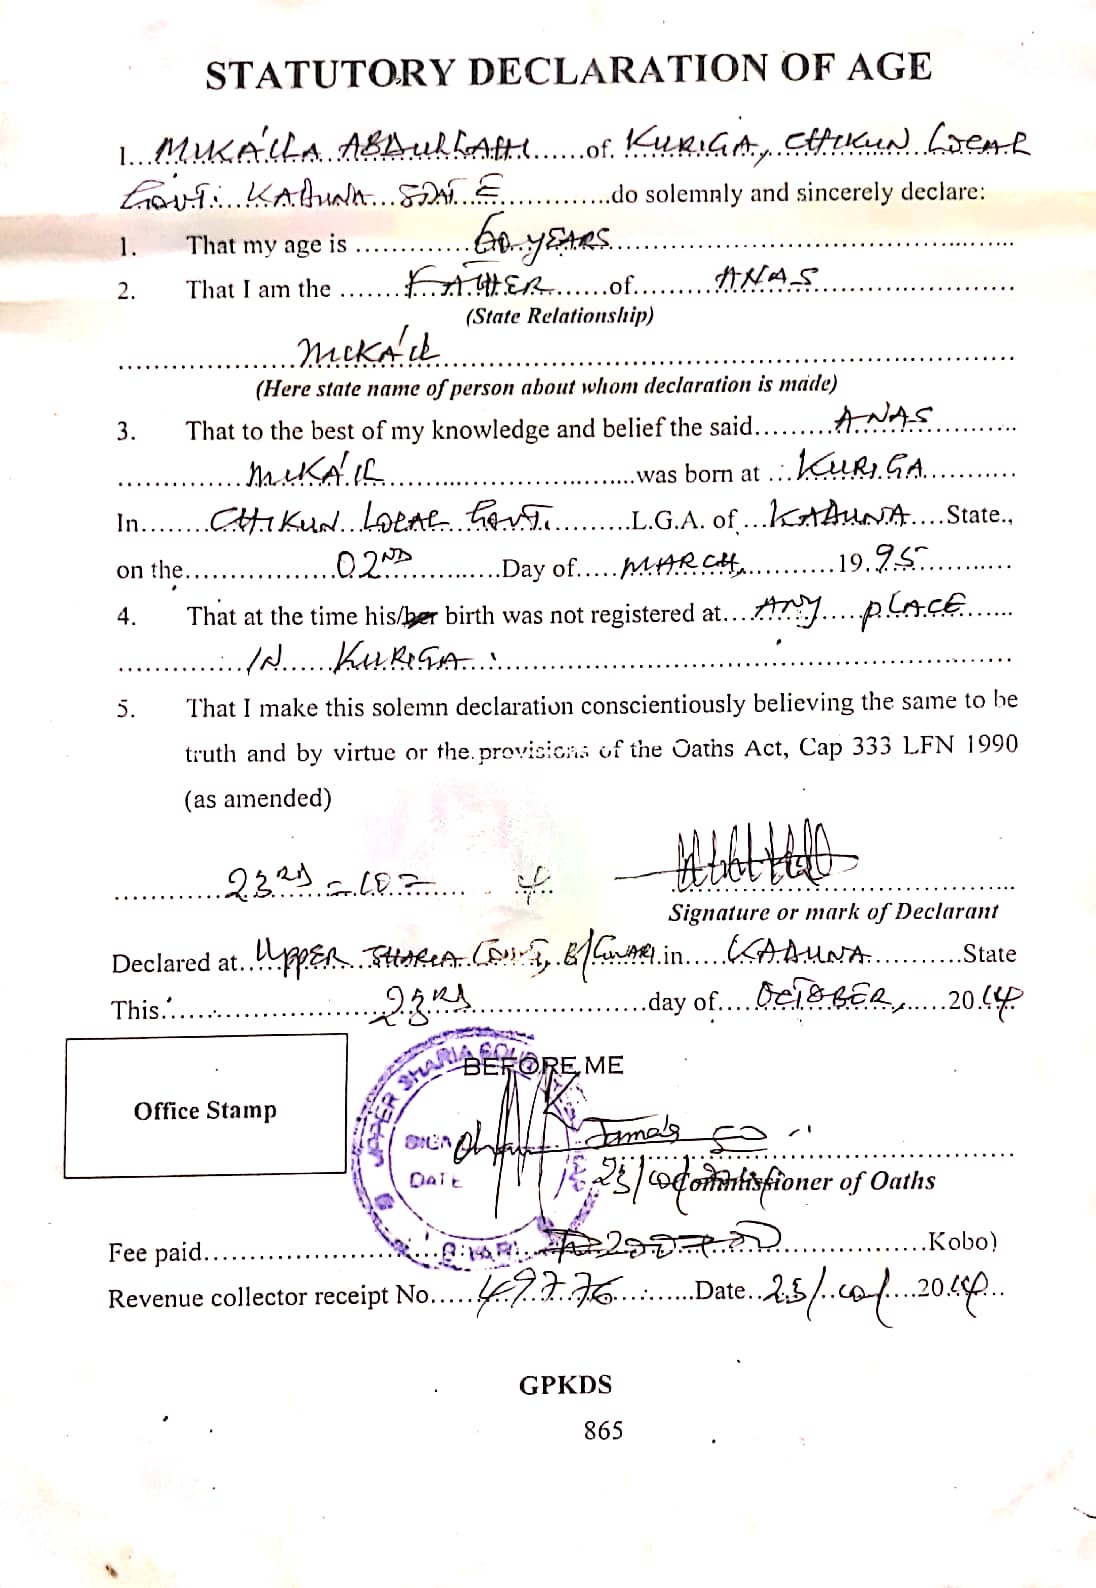 STATUTORY DECLARATION OF AGE
1... MIKA'ILA ABDULLAHI ......of. KURIGA, CHIKUN LOCAL
GOVT. KADUNA STATE ............do solemnly and sincerely declare:
1. That my age is ............ 60 YEARS ............
2. That I am the ....... FATHER ......of......... ANAS ............
(State Relationship)
............ MIKA'IL ............
(Here state name of person about whom declaration is made)
3. That to the best of my knowledge and belief the said......... ANAS ............
............ MIKA'IL ............was born at ... KURIGA ............
In........ CHIKUN LOCAL GOVT. .........L.G.A. of ... KADUNA ....State.,
on the................ 02ND ............Day of..... MARCH, ...........19.95............
4. That at the time his/her birth was not registered at.... ANY ..... PLACE ......
............ IN ...... KURIGA ............
5. That I make this solemn declaration conscientiously believing the same to be
truth and by virtue or the provisions of the Oaths Act, Cap 333 LFN 1990
(as amended)
............ 23RD = 10 = ......
Signature or mark of Declarant
Declared at.. UPPER SHARIA COURT, B/GWARI in..... KADUNA ..........State
This:.................. 23RD ..................day of.... OCTOBER, ......20.14
UPPER SHARIA COURT
BEFORE ME
Office Stamp
SIGN
DATE
Commissioner of Oaths
Fee paid............................................Kobo)
Revenue collector receipt No..... 49776 ..........Date.. 23/10/ ....20.14...
GPKDS
865